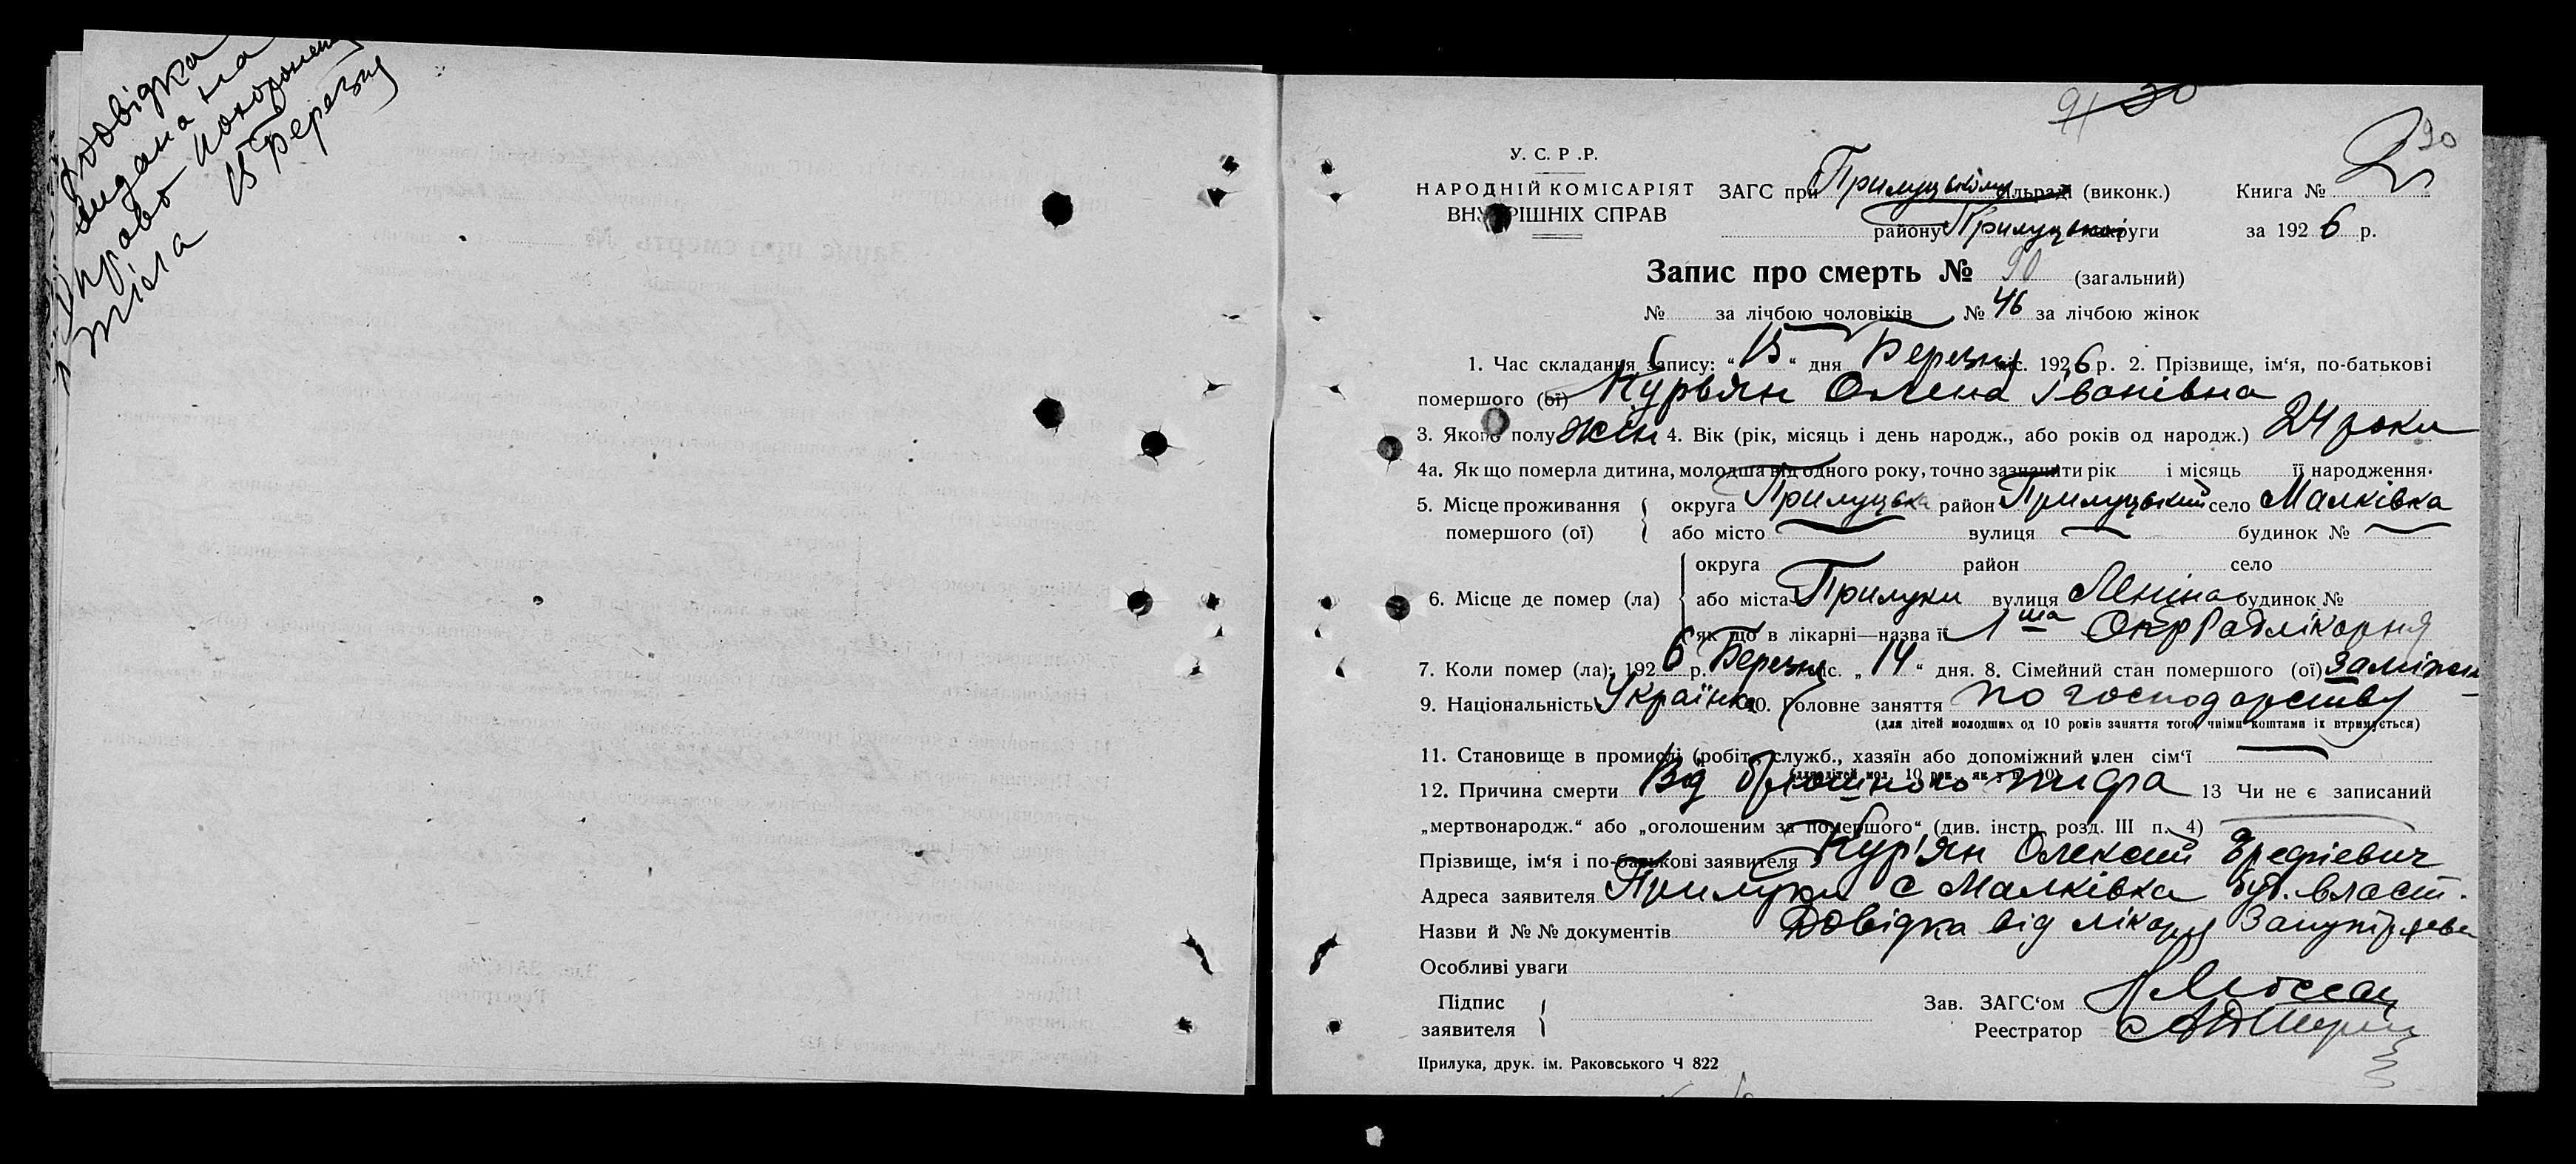 Довідка
видана на
право похоронення
тіла 15 березня
91 30
90
У. С. Р .Р.
НАРОДНІЙ КОМІСАРІЯТ
ВНУТРІШНІХ СПРАВ
ЗАГС при Прилуцькому сільраді (виконк.)
району Прилуцької округи
Книга № 2
за 1926 р.
Запис про смерть № 90 (загальний)
№ за лічбою чоловіків № 46 за лічбою жінок
1. Час складання запису: “ 15 “ дня Березня міс. 1926 р. 2. Прізвище, ім‘я, по-батькові
помершого (ої) Курьян Олена Іванівна
3. Якого полу жін 4. Вік (рік, місяць і день народж., або років од народж.) 24 роки
4а. Як що померла дитина, молодша від одного року, точно зазначити рік і місяць її народження.
5. Місце проживання помершого (ої) { округа Прилуцька район Прилуцький село Малківка
або місто вулиця будинок №
6. Місце де помер (ла) { округа район село
або міста Прилуки вулиця Леніна будинок №
як що в лікарні—назва її 1ша Окррадлікарня
7. Коли помер (ла): 1926 р. Березня міс. „ 14 “ дня. 8. Сімейний стан помершого (ої) заміжня
9. Національність Українка 10. Головне заняття по господарству
(для дітей молодших од 10 років заняття того, чиїми коштами їх втримується)
11. Становище в промислі (робіт., служб., хазяїн або допоміжний член сім‘ї
(для дітей мол. 10 рок., як у п. 10)
12. Причина смерти Від брюшного тифа 13 Чи не є записаний
„мертвонародж.“ або „оголошеним за помершого“ (див. інстр. розд. III п. 4)
Прізвище, ім‘я і по-батькові заявителя Кур'ян Олексій
Адреса заявителя Прилуки с Малківка буд. власт.
Назви й №№ документів Довідка від лікаря
Особливі уваги
Підпис заявителя {
Зав. ЗАГС‘ом
Реєстратор
Прилука, друк. ім. Раковського Ч 822